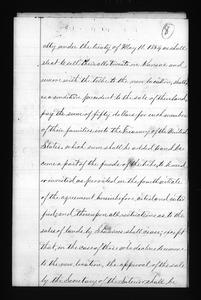 8
alty under the treaty of May 10, 1854 as shall
elect to sell their allotments in Kansas and
remove with the tribe to the new location, shall,
as a condition precedent to the sale of their lands,
pay the sum of fifty dollars for each member
of their families into the Treasury of the United
States, which sum shall be added to and be-
come a part of the funds of the tribe, to be used
or invested as provided in the fourth article
of the agreement hereinbefore recited and noted
and thereupon all restrictions as to the
sales of lands by Shawnees shall cease; except
that, in the case of those who do also remove
to the new location, the approval of the sale
by the Secretary of the Interior shall be